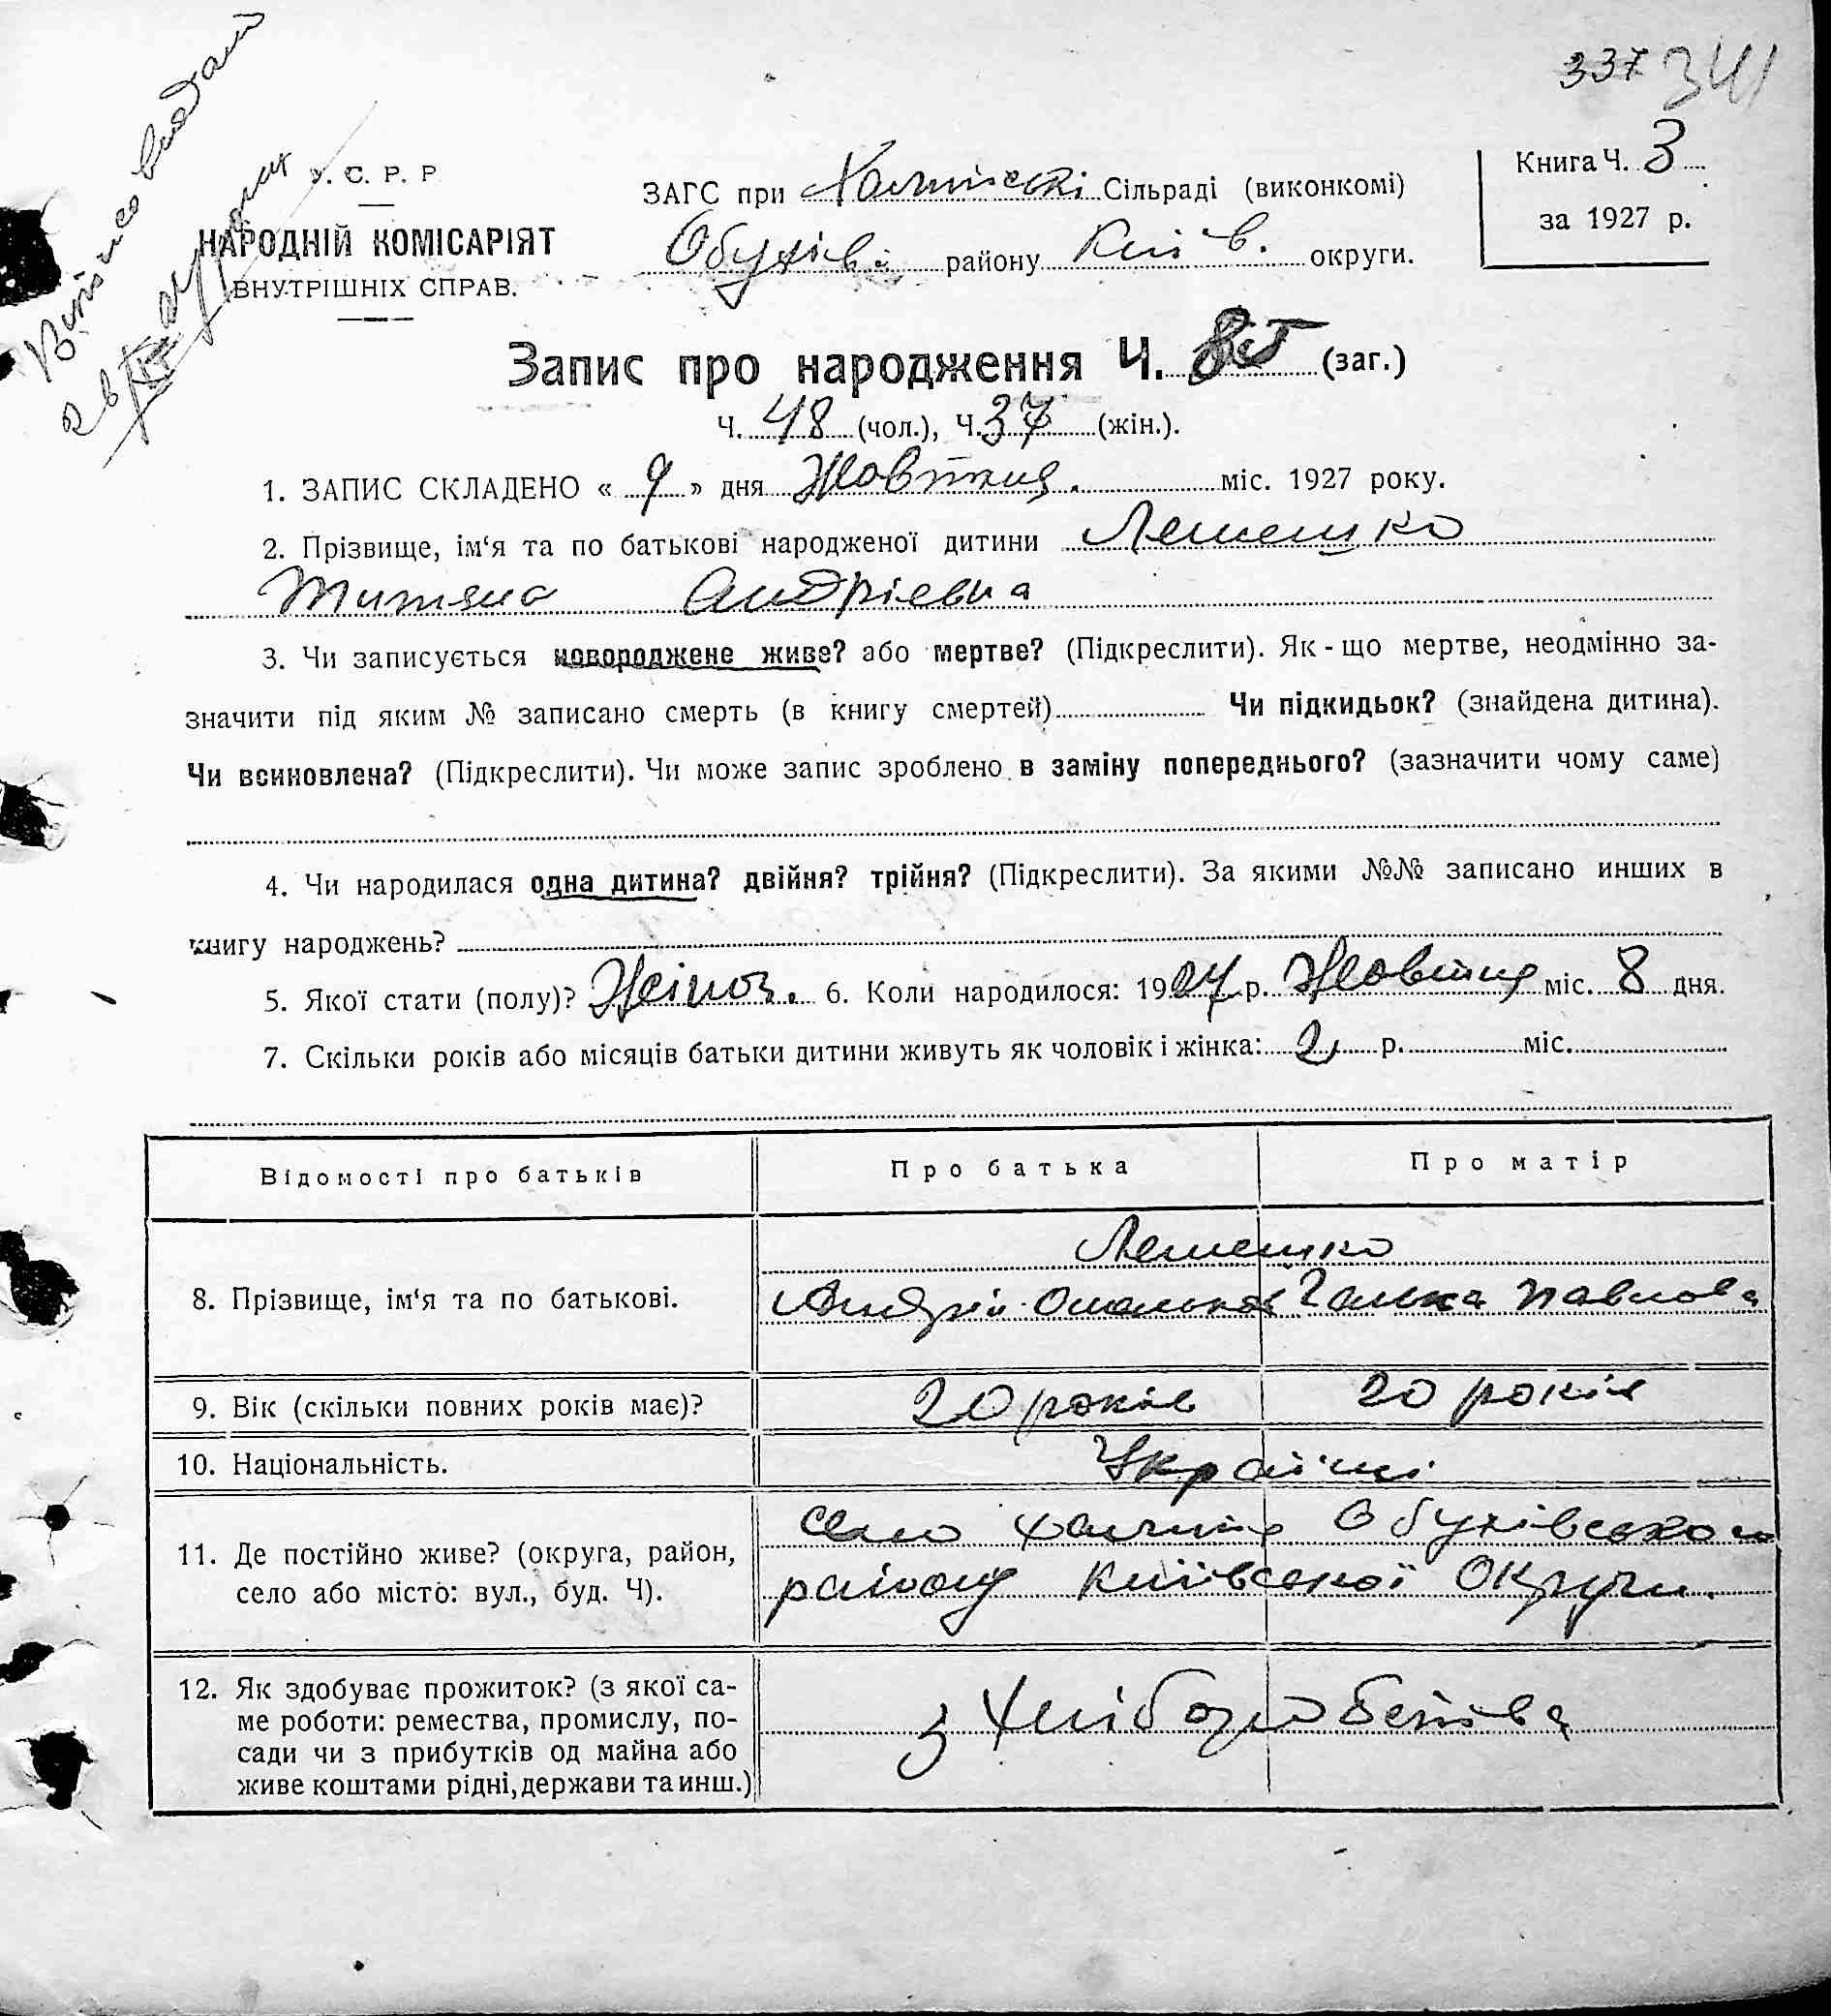 337 341
Виписо видані
У. С. Р. Р
НАРОДНІЙ КОМІСАРІЯТ
ВНУТРІШНІХ СПРАВ.
ЗАГС при Халпінські Сільраді (виконкомі)
Обухівс району Київ. округи.
Книга Ч. 3
за 1927 р.
Запис про народження Ч. 85 (заг.)
Ч. 48 (чол.), Ч. 37 (жін.).
1. ЗАПИС СКЛАДЕНО « 9 » дня Жовтня. міс. 1927 року.
2. Прізвище, ім‘я та по батькові народженої дитини Лемешко
Титяна Андріевна
3. Чи записується новороджене живе? або мертве? (Підкреслити). Як-що мертве, неодмінно за-
значити під яким № записано смерть (в книгу смертей) Чи підкидьок? (знайдена дитина).
Чи всиновлена? (Підкреслити). Чи може запис зроблено в заміну попереднього? (зазначити чому саме)
4. Чи народилася одна дитина? двійня? трійня? (Підкреслити). За якими №№ записано инших в
книгу народжень?
5. Якої стати (полу)? Жіноч. 6. Коли народилося: 1927 р. Жовтня міс. 8 дня.
7. Скільки років або місяців батьки дитини живуть як чоловік і жінка: 2 р. міс.
Відомості про батьків Про батька Про матір
8. Прізвище, ім‘я та по батькові. Лемешко
Андрій Омельков Ганна Павлова
9. Вік (скільки повних років має)? 20 років 20 років
10. Національність. Українці
11. Де постійно живе? (округа, район,
село або місто: вул., буд. Ч).
село Халпіє Обухівського
району Київської Округи.
12. Як здобуває прожиток? (з якої са-
ме роботи: ремества, промислу, по-
сади чи з прибутків од майна або
живе коштами рідні, держави та инш.)
з Хліборобства